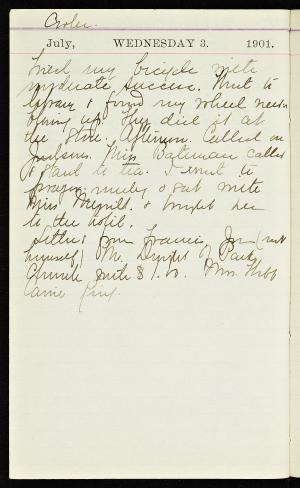 Cooler.
July, WEDNESDAY 3. 1901.
Tried my bicycle with
moderate success. Went to
library & found my wheel needed
. They did it at
the store. Afternoon. Called on
. Miss Bateman called
& staid to tea. I went to
prayer meeting & sat with
Miss Merrill & brought her
to the hotel.
Letters from Francis, (not
himself) Mr. Dwight of Park
with $
Carrie King.